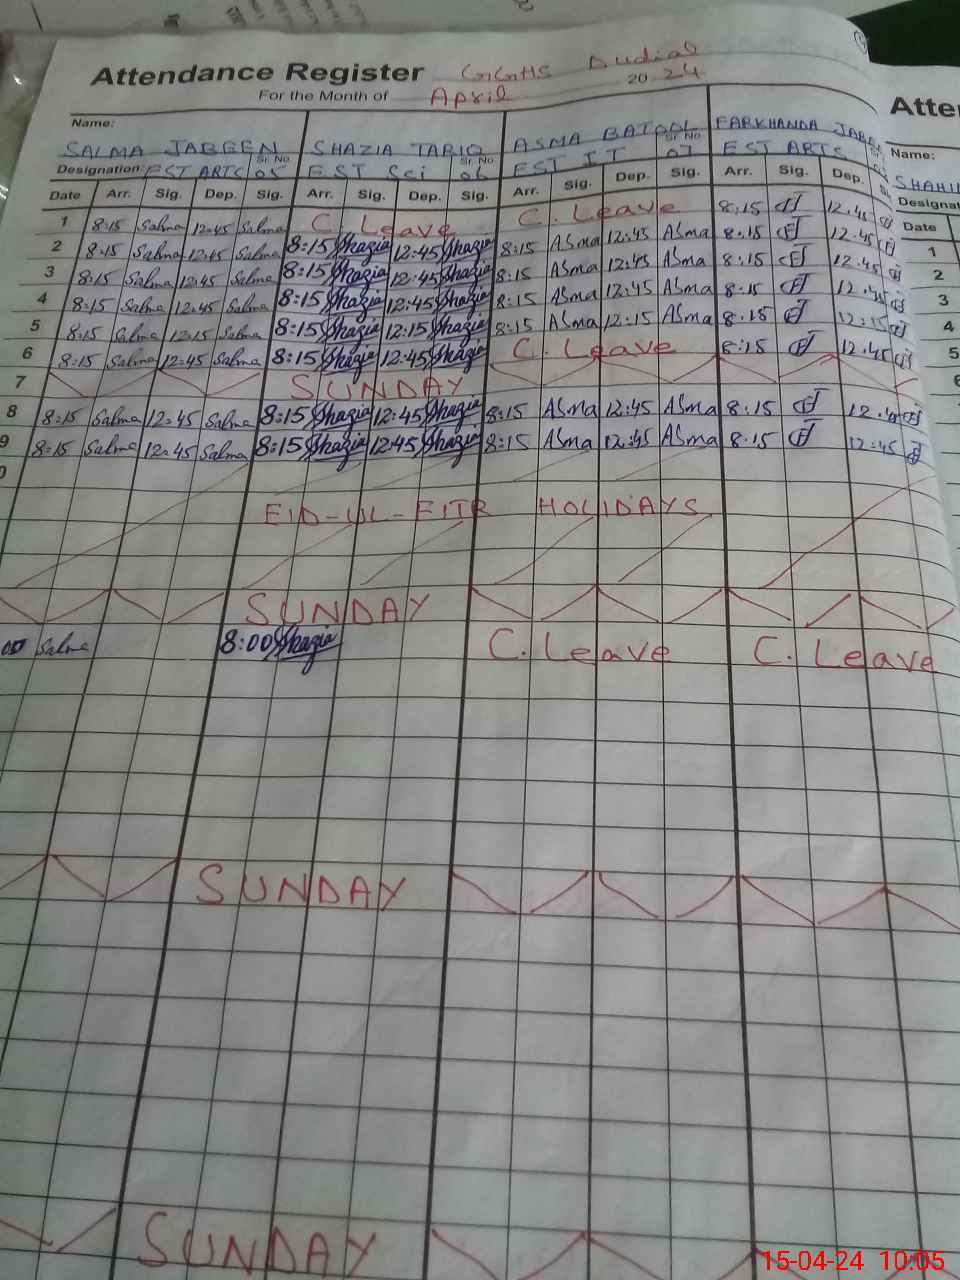 Attendance Register GGHS Dudial
For the Month of April 20 24
Name:
SALMA JABEEN SHAZIA TARIQ ASMA BATOOL FARKHANDA
Designation: EST ARTS Sr. No. 05 EST Sci Sr. No. 06 EST IT Sr. No. 07 EST ARTS
Date Arr. Sig. Dep. Sig. Arr. Sig. Dep. Sig. Arr. Sig. Dep. Sig. Arr. Sig. Dep.
1 8:15 Salma 12:45 Salma C. Leave C. Leave 8:15 12:45
2 8:15 Salma 12:45 Salma 8:15 Shazia 12:45 Shazia 8:15 ASma 12:45 ASma 8:15 12:45
3 8:15 Salma 12:45 Salma 8:15 Shazia 12:45 Shazia 8:15 ASma 12:45 ASma 8:15 12:45
4 8:15 Salma 12:45 Salma 8:15 Shazia 12:45 Shazia 8:15 ASma 12:45 ASma 8:15 12:45
5 8:15 Salma 12:15 Salma 8:15 Shazia 12:15 Shazia 8:15 ASma 12:15 ASma 8:15 12:15
6 8:15 Salma 12:45 Salma 8:15 Shazia 12:45 Shazia C. Leave 8:15 12:45
7 SUNDAY
8 8:15 Salma 12:45 Salma 8:15 Shazia 12:45 Shazia 8:15 ASma 12:45 ASma 8:15 12:45
9 8:15 Salma 12:45 Salma 8:15 Shazia 12:45 Shazia 8:15 ASma 12:45 ASma 8:15 12:45
0
EID-UL-FITR HOLIDAYS
SUNDAY
Salma 8:00 Shazia C. Leave C. Leave
SUNDAY
SUNDAY
Atte
Name:
SHAHI
Designat
Date
1
2
3
4
5
6
15-04-24 10:05